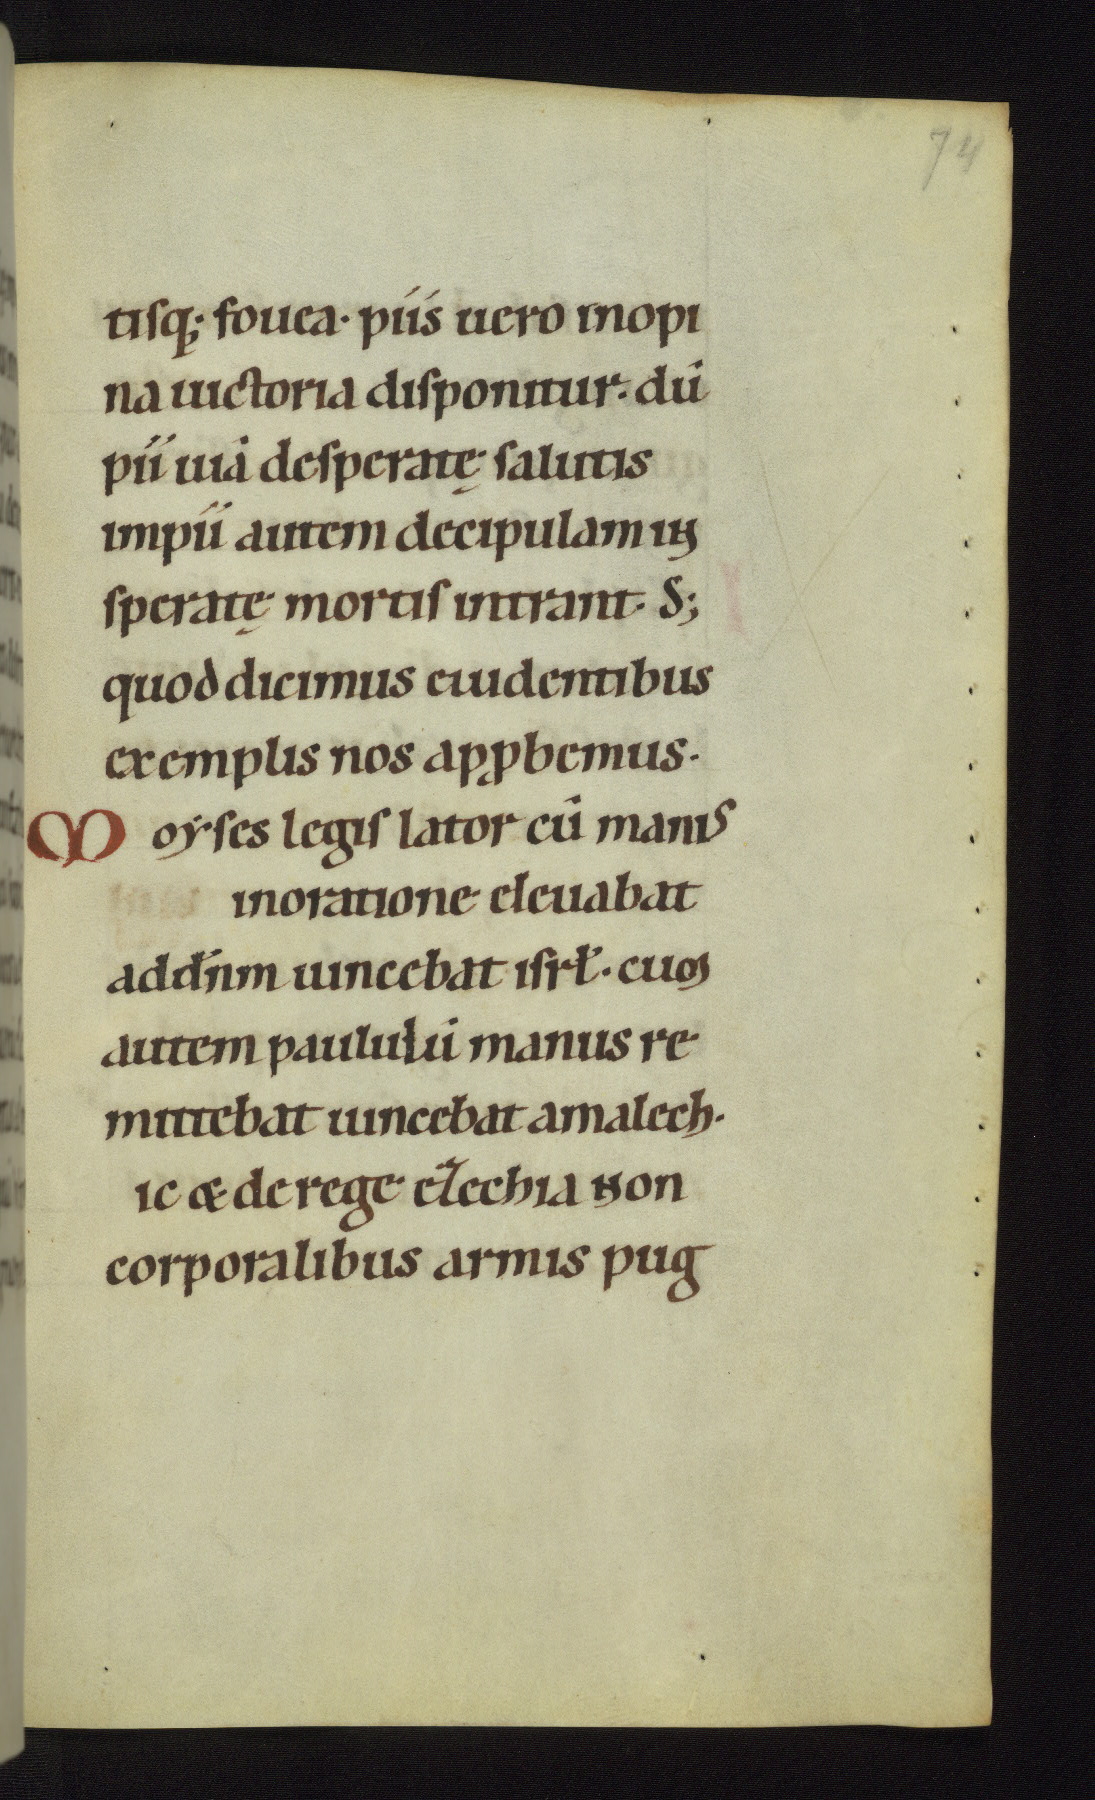 74
tisq; fouea· piis uero inopi
na uictoria disponitur· dū
pii uiā desperatę salutis
impii autem decipulam in
speratę mortis intrant· S;
quod dicimus euidentibus
exemplis nos apꝓbemus·
Moyses legis lator cū manus
in oratione eleuabat
ad dn̄m uincebat isrł· cum
autem paululū manus re
mittebat uincebat amalech·
ic & de rege ezechia non
corporalibus armis pug